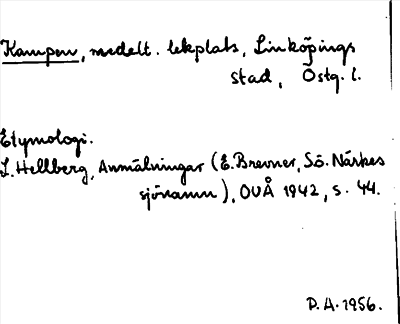 Kampen, medelt. lekplats, Linköpings
stad, Östg. l.
Etymologi.
L. Hellberg, Anmälningar (E. Brevner, Sö. Närkes
sjönamn), OUÅ 1942, s. 44.
P. A. 1956.